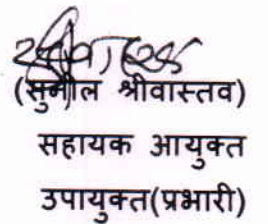 (सुनील श्रीवास्तव)
सहायक आयुक्त
उपायुक्त(प्रभारी)